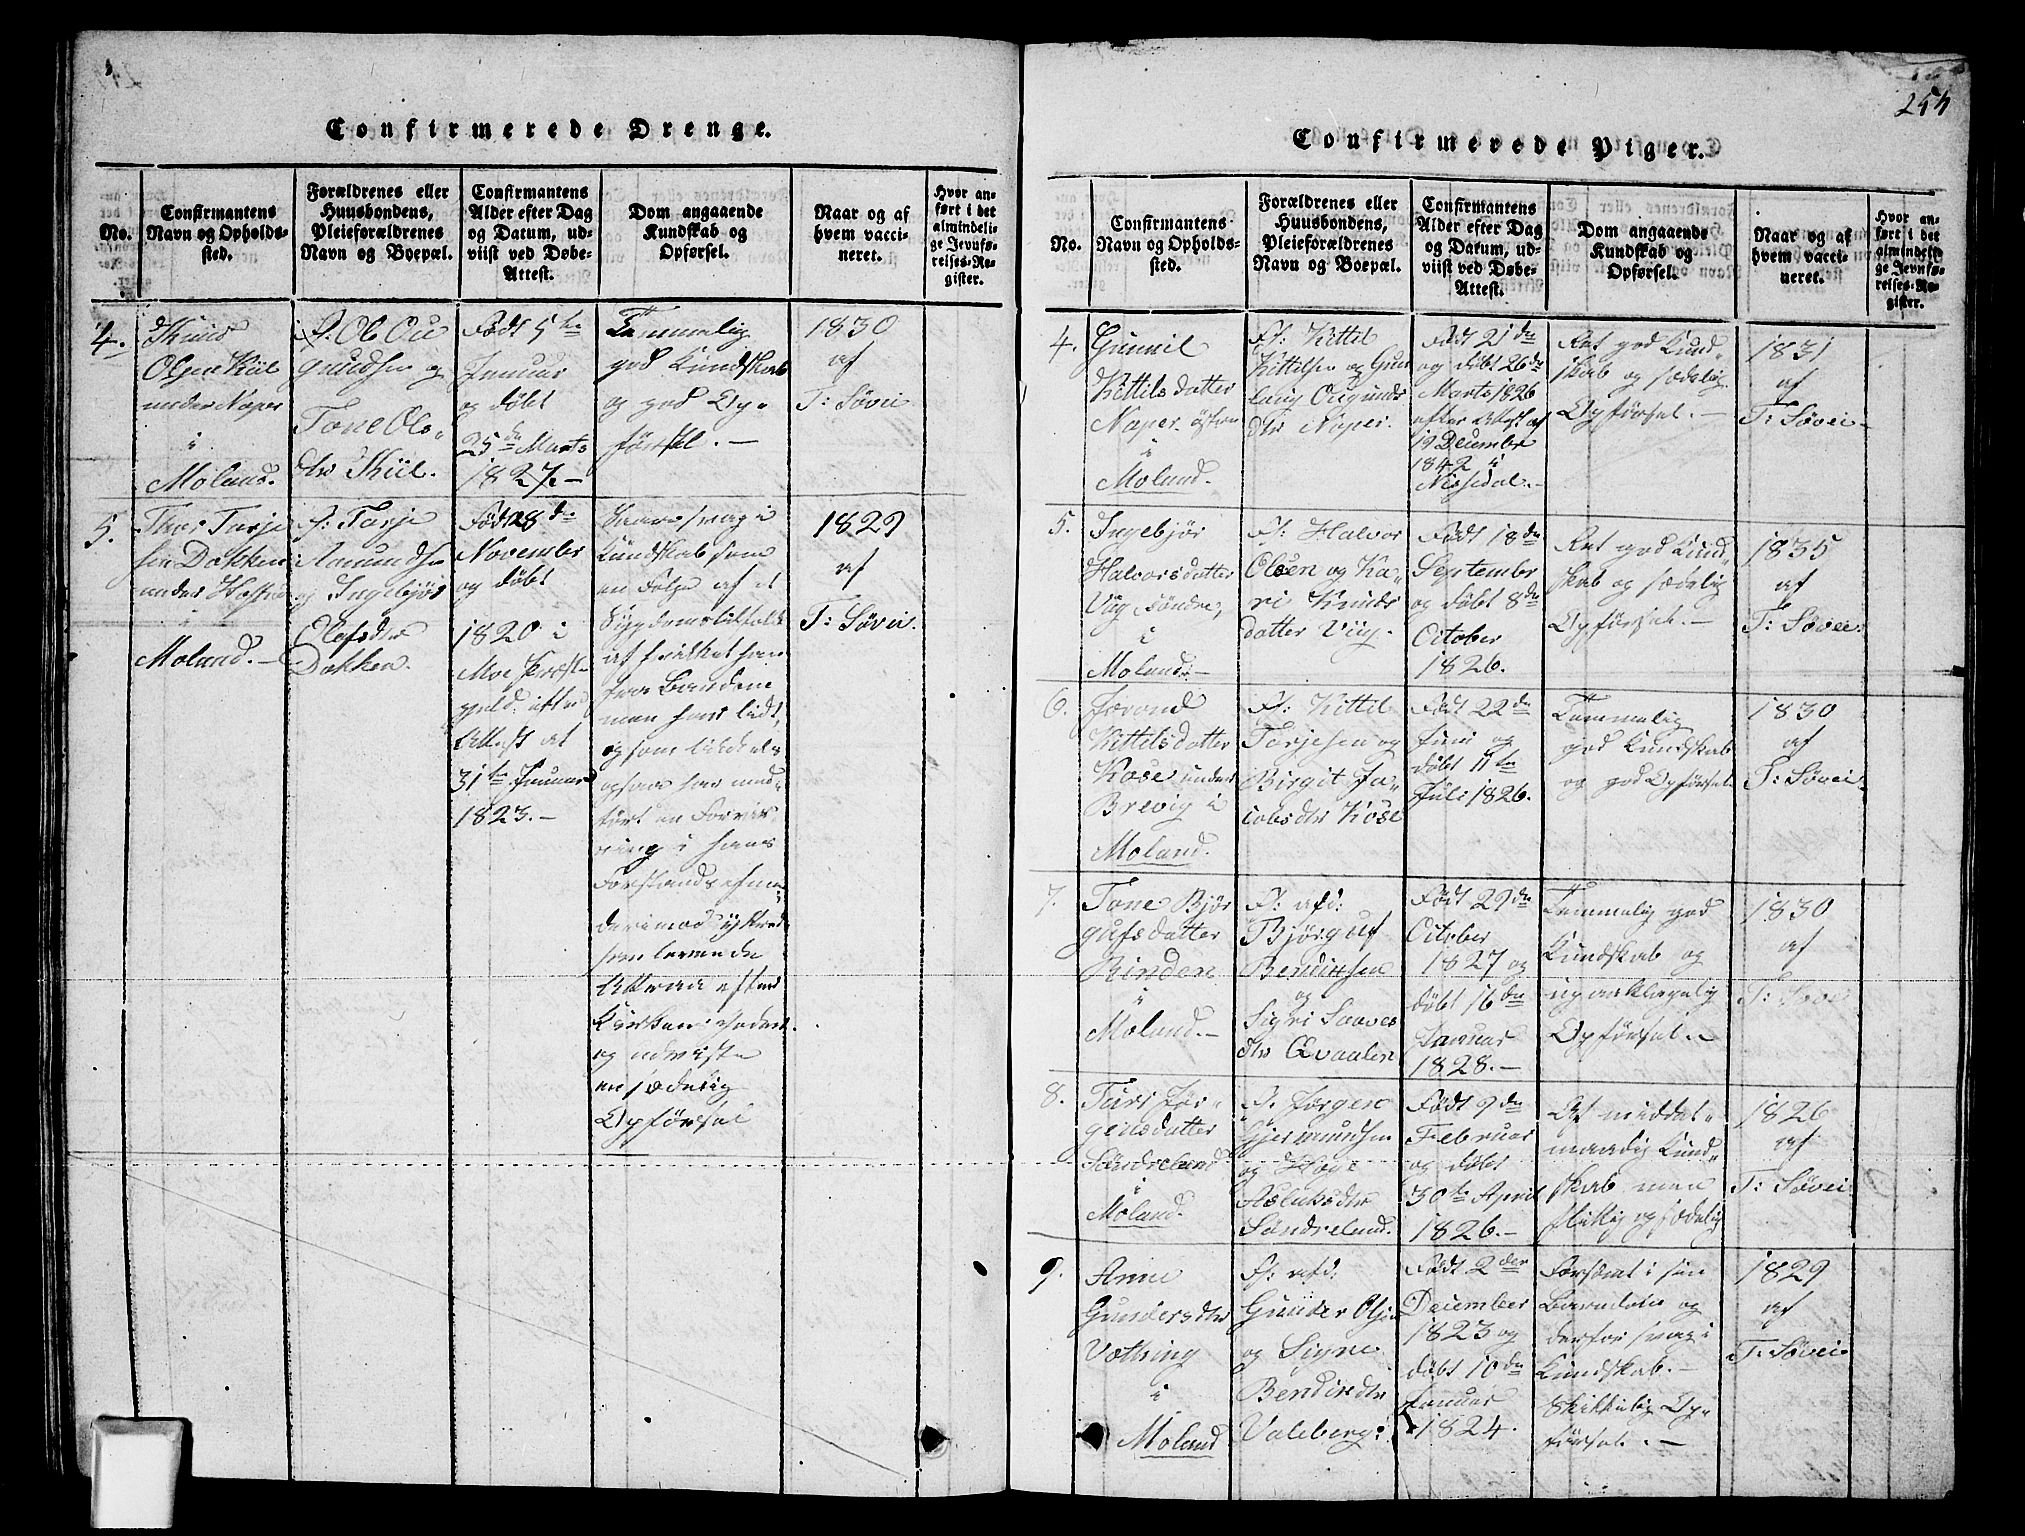 Confirmerede Drenge.
No.
Confirmantens
Navn og Opholds-
sted.
Forældrenes eller
Huusbondens,
Pleieforældrenes
Navn og Boepæl.
Confirmantens
Alder efter Dag
og Datum, ud-
viist ved Døbe-
Attest.
Dom angaaende
Kundskab og
Opførsel.
Naar og af
hvem vacci-
neret.
Hvor an-
ført i det
almindeli-
ge Jevnfø-
relses-Re-
gister.
4.
Knud
Olsen Kiil
under Naper
i
Moland.
F: Ol Ou
gundsen og
Tone Ols-
dtr Kiil.
Født 5te
Januar
og døbt
25de Marts
1827.-
Temmelig
god Kundskab
og god Op-
førsel.-
1830
af
T: Søvei
5.
Thor Tarje
sen Dokken
under
i
Moland.-
F: Tarje
Aamundsen
og Ingebjør
Olafsdtr
Dokken.
Født 28de
November
og døbt
1820 i
Moe Præste-
gjeld efter
Attest af
31te Januar
1823.-
Kundskab som
en Følge af et
Sygdomstilfælde
af hvilket han
fra Barndom-
men har lidt,
og som
ført en Forvir-
ring i hans
Forstands
derimod
Kirkens
og udviste
en sædelig
Opførsel
1829
af
T: Søvei.
254
Confirmerede Piger.
No.
Confirmantens
Navn og Opholds-
sted.
Forældrenes eller
Huusbondens,
Pleieforældrenes
Navn og Boepæl.
Confirmantens
Alder efter Dag
og Datum, ud-
viist ved Døbe-
Attest.
Dom angaaende
Kundskab og
Opførsel.
Naar og af
hvem vacci-
neret.
Hvor an-
ført i det
almindeli-
ge Jevnfø-
relses-Re-
gister.
4.
Gunnil
Kittilsdatter
Naper østre
i
Moland.
F: Kittil
Kittilsen og Gun
laug Ougunds
dtr Naper.
Født 21de
og døbt 26de
Marts 1826
efter Attest af
19 December
1842 i
Nissedal.-
Ret god Kund-
skab og sædelig
Opførsel.-
1831
af
T: Søvei-
5.
Ingebjør
Halvorsdatter
Viig søndre,
i
Moland.-
F: Halvor
Olsen og Ka-
ri Knuds
datter Viig.
Født 18de
September
og døbt 8de
October
1826.
Ret god Kund-
skab og sædelig
Opførsel.-
1835
af
T: Søvei.
6.
Jorond
Kittilsdatter
Kose under
Brevig i
Moland.
F: Kittil
Tarjesen og
Birgit Ja-
cobsdtr Kose
Født 22de
Juni og
døbt 11te
Juli 1826.
Temmelig
god Kundskab
og god Opførsel
1830
af
T: Søvei.
7.
Tone Bjør
gufsdatter
Rinden
i
Moland.-
F: afd:
Bjørguf
Bendixsen
og
Sigri Saaves
dtr Qvaalen
Født 29de
October
1827 og
døbt 16de
Januar
1828.-
Temmelig god
Kundskab og
upaaklagelig
Opførsel.-
1830
af
T: Søvei
8.
Turi Jør-
gensdatter
Søndreland
i
Moland.
F: Jørgen
Gjermundsen
og Hæge
Aslaksdtr
Søndreland.
Født 9de
Februar
og døbt
30te April
1826.-
Af middel-
maadig Kund-
skab men
flittig og sædelig
1826
af
T: Søvei
9.
Anne
Gundersdtr
Vettring
i
Moland
F: afd:
Gunder Olsen
og Signe
Bendixdtr
Valeberg.
Født 2den
December
1823 og
døbt 10de
Januar
1824.
Forsømt i sin
Barndom og
derfor svag i
Kundskab.-
Skikkelig Op-
førsel.-
1829
af
T: Søvei